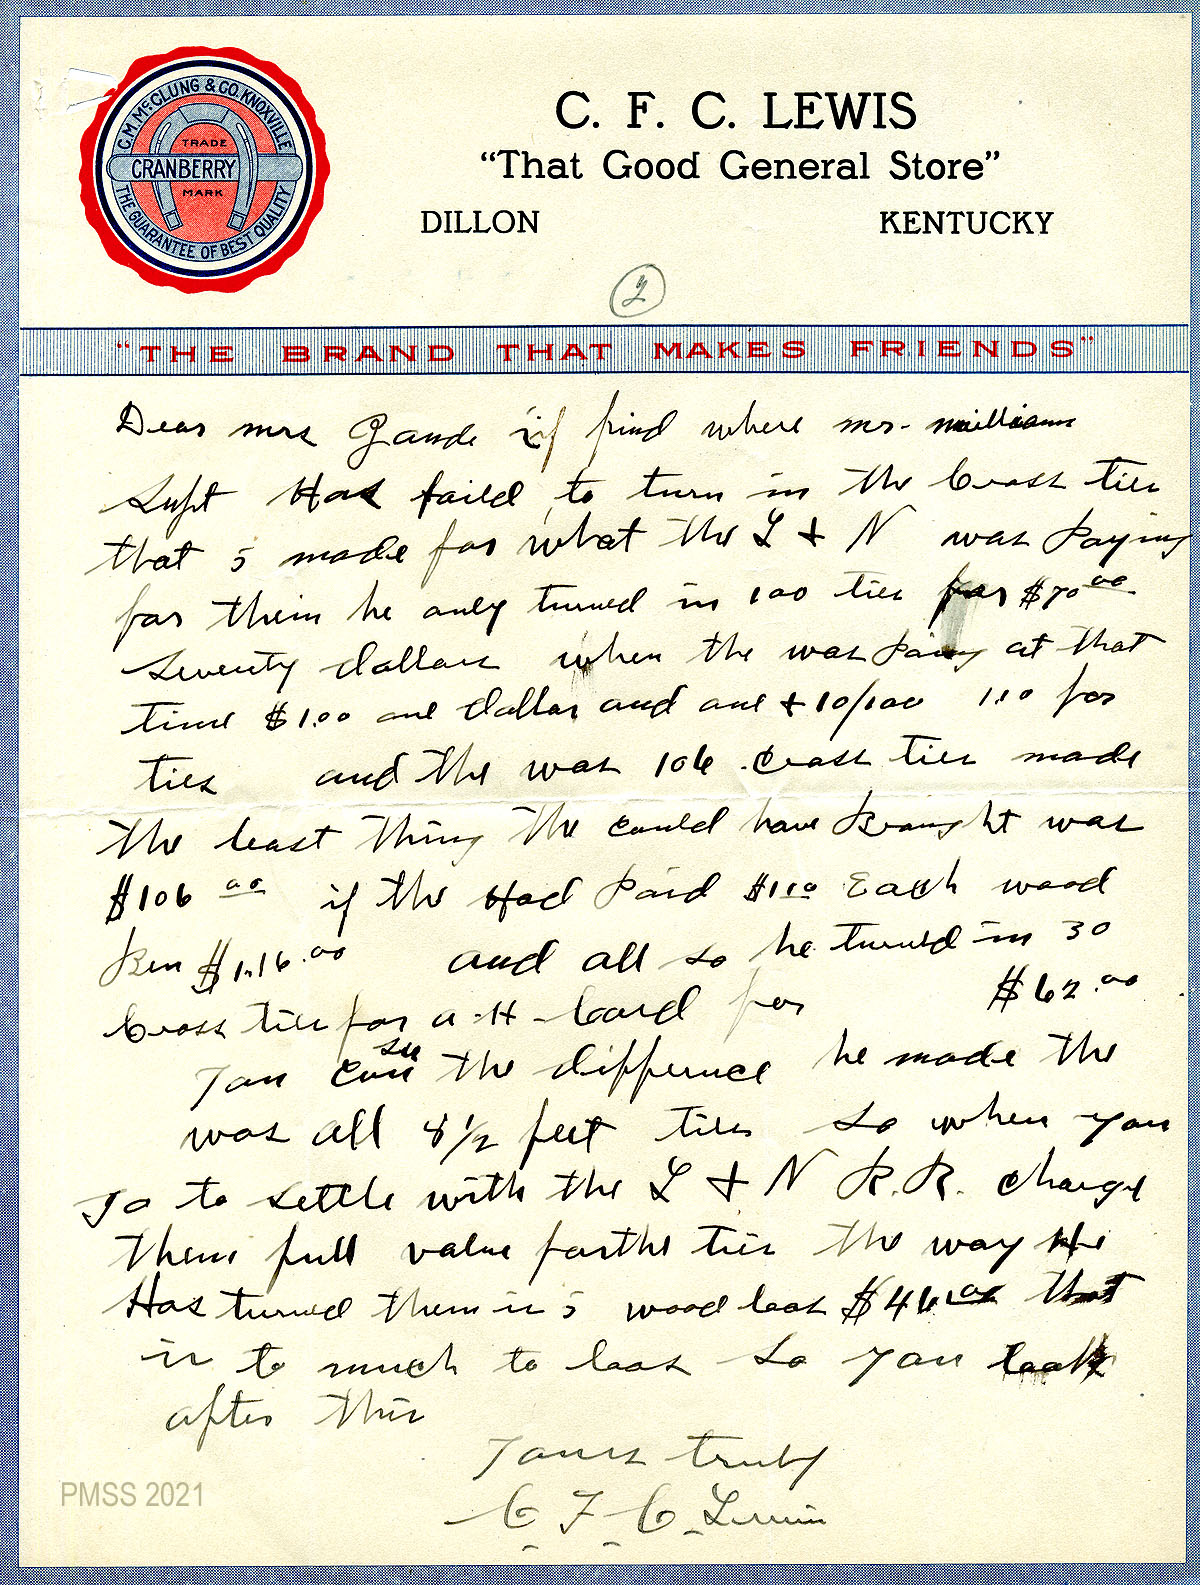 C.M. McCLUNG & CO. KNOXVILLE
TRADE
CRANBERRY
MARK
THE GUARANTEE OF BEST QUALITY
C. F. C. LEWIS
"That Good General Store"
DILLON KENTUCKY
2
"THE BRAND THAT MAKES FRIENDS"
Dear mrs Zande if find where mr. williams
Supt Has faild to turn in the Cross ties
that I made for what the L & N was Paying
for them he only turned in 100 ties for $70.00
Seventy dollars when the was Paing at that
time $1.00 one dollar and one + 10/100 1.10 for
ties and the was 106 Cross ties made
the least thing the could have Brought was
$106 00 if the Had Paid $1.10 Each wood
Ben $1.16.00 and all so he turned in 30
Cross ties for a H - Cord for $62.00
you can see the differnce he made the
was all 8 1/2 feet ties So when you
go to settle with the L & N R.R. charge
them full value forthe ties the way He
Has turned them in I wood loos $46.00 that
is to much to loos So you look
after this
Yours truly
C F C Lewis
PMSS 2021